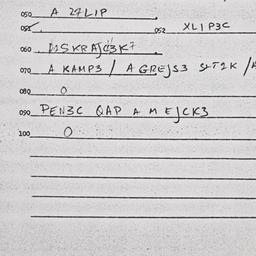 050 A 27LIP
051 052 XLIP3C
060 DSKRAJC3K7
070 A KAMP3 / A GREJS3
080 O
090 PEN3C QAP A M EJCK3
100 O